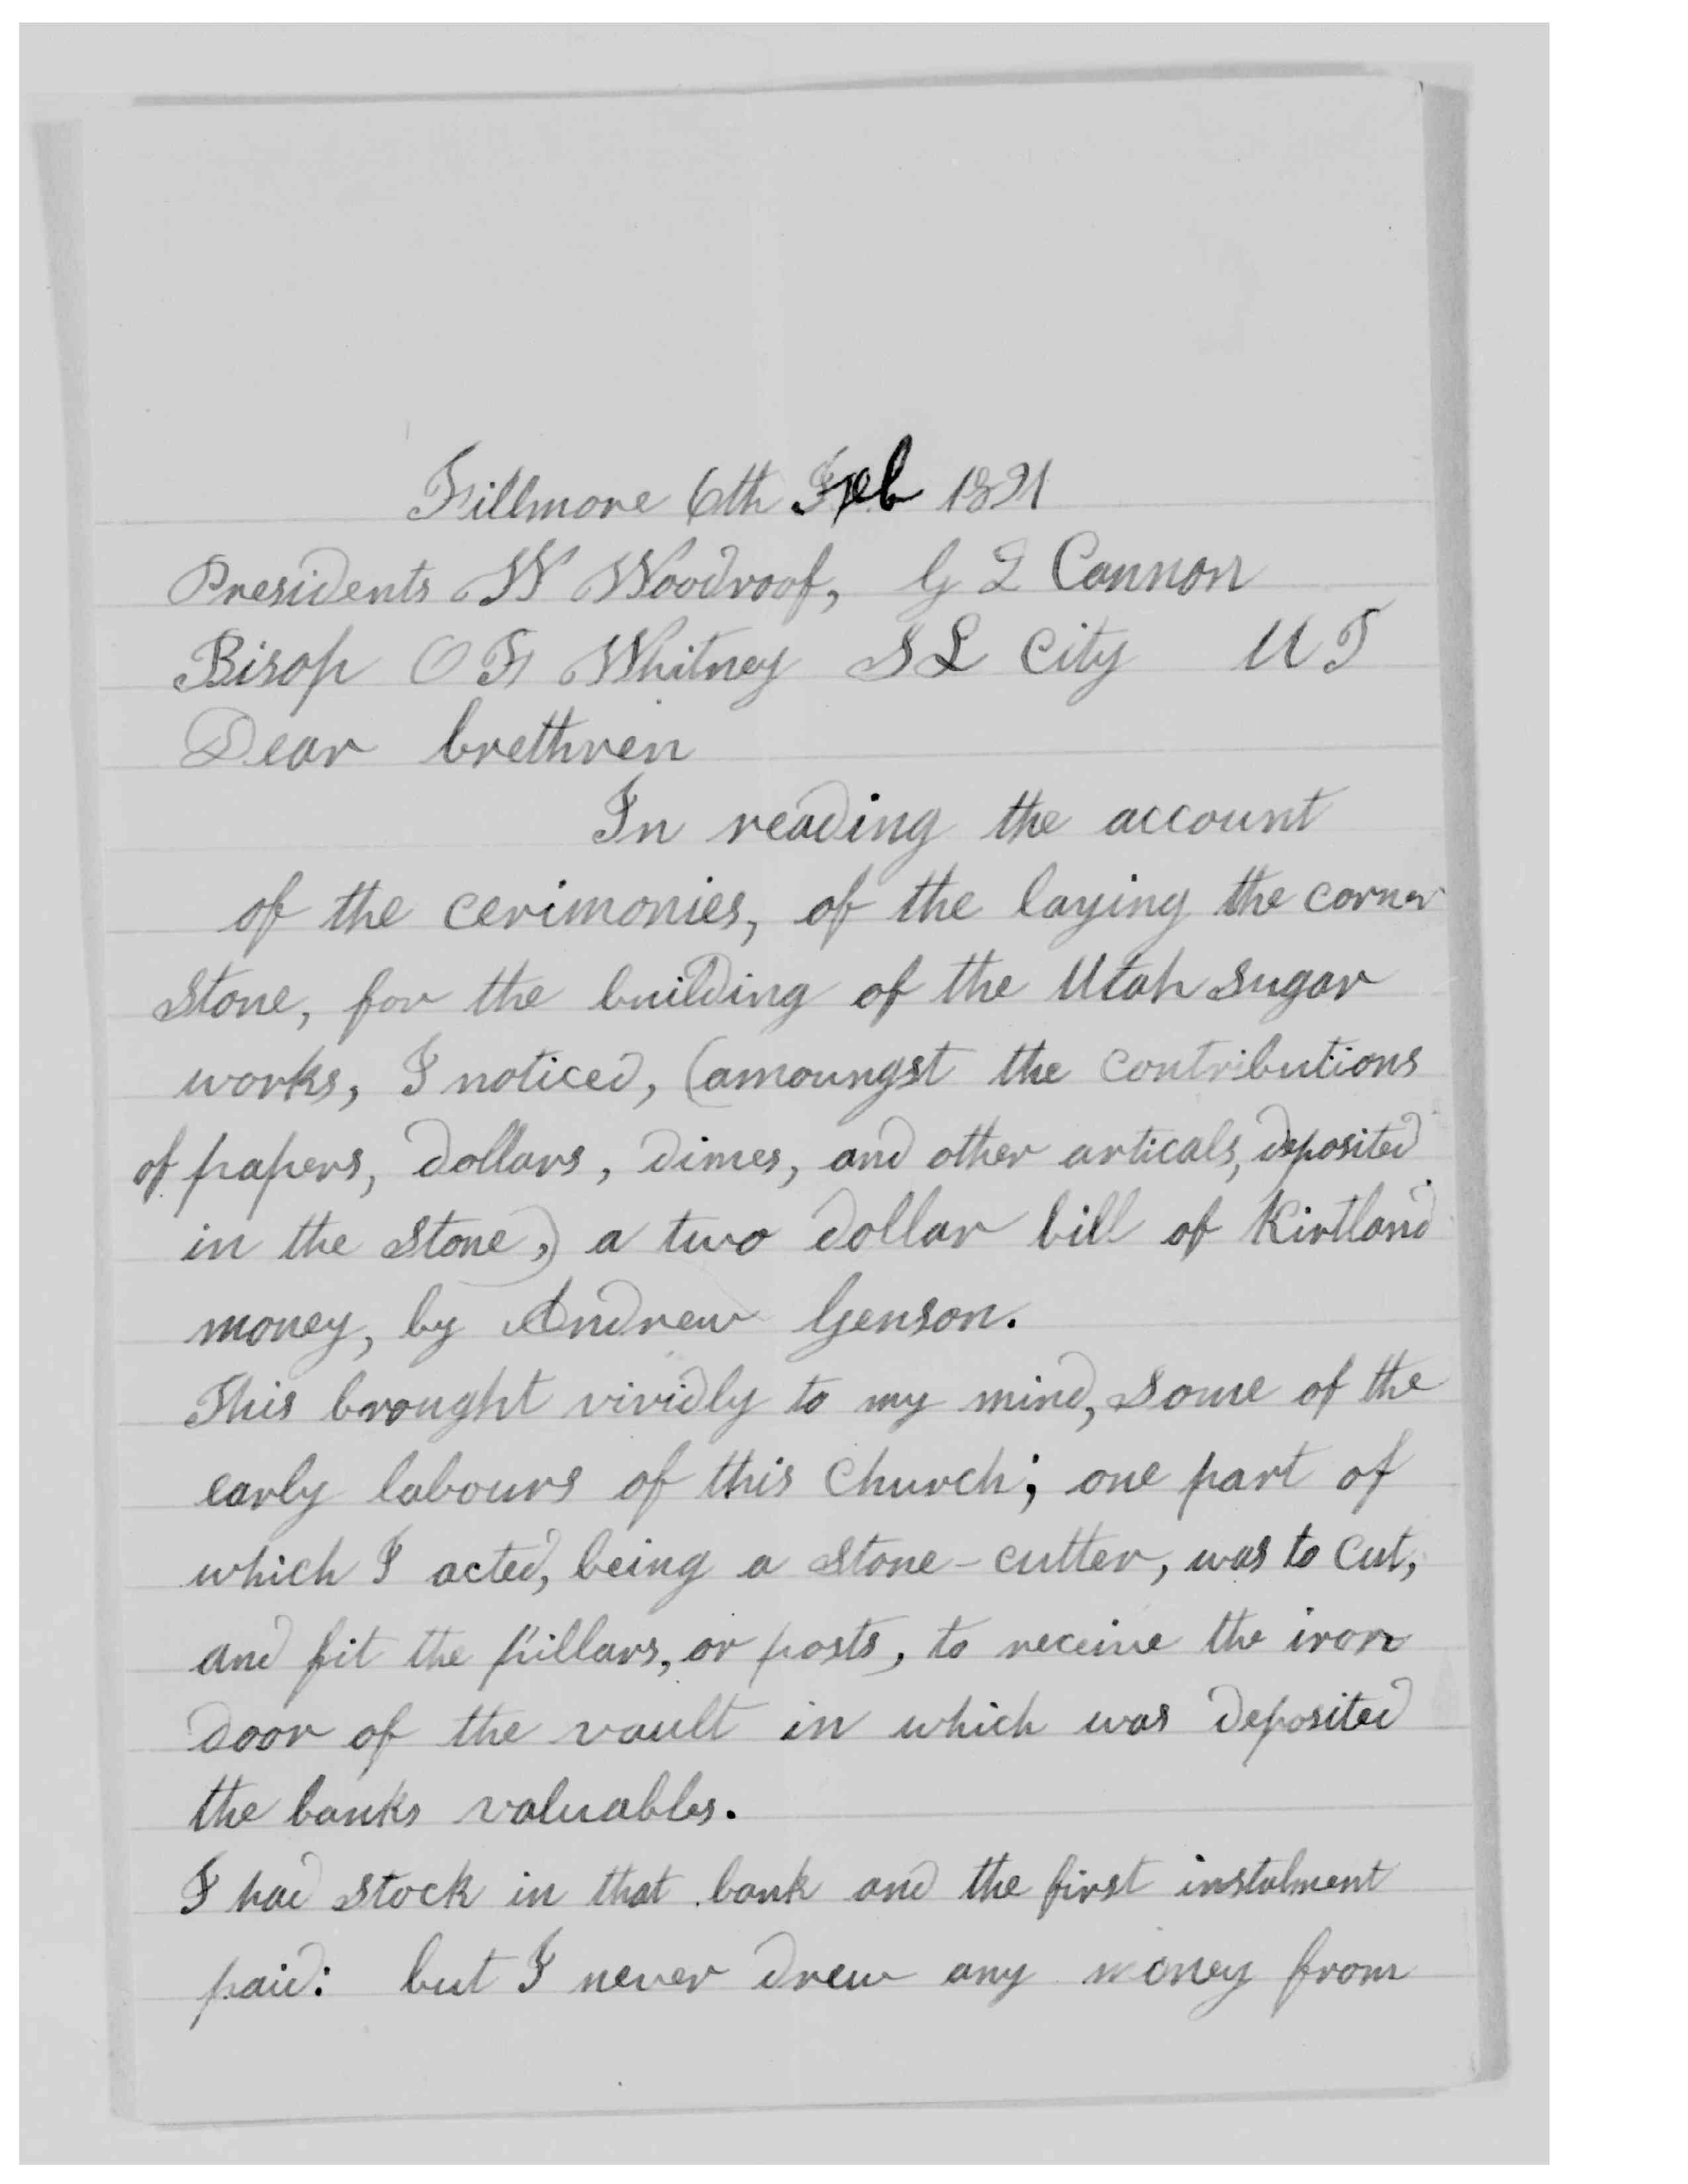 Fillmore 6th Feb 1891
Presidents W Woodroof, G Q Cannon
Bisop O F Whitney S L City U T
Dear brethren
In reading the account
of the cerimonies, of the laying the corner
stone, for the building of the Utah sugar
works, I noticed, (amoungst the contributions
of papers, dollars, dimes, and other articals, deposited
in the stone,) a two dollar bill of Kirtland
money, by Andrew Genson.
This brought vividly to my mind, some of the
early labours of this church; one part of
which I acted, being a stone-cutter, was to cut,
and fit the pillars, or posts, to receive the iron
door of the vault in which was deposited
the banks valuables.
I had stock in that bank and the first instalment
paid: but I never drew any money from